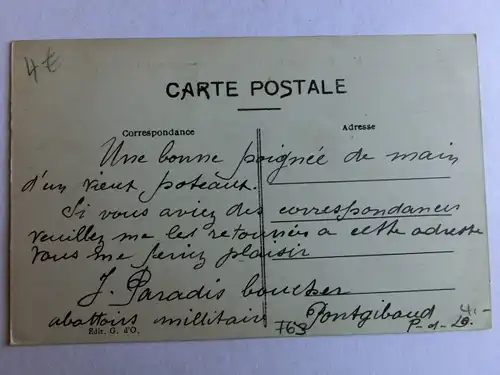 4€
CARTE POSTALE
Correspondance
Adresse
Une bonne poignée de main
d'un vieux poteaux.
Si vous aviez des correspondances
veuillez me les retournées a cette adresse
vous me feriez plaisir
J. Paradis boucher
abattoirs militair Pontgibaud
Édit. G. d'O.
769
P-d-D.
4.-